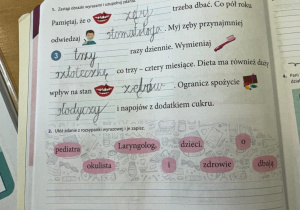 1. Zastąp obrazki wyrazami i uzupełnij zdania.
Pamiętaj, że o zęby trzeba dbać. Co pół roku
odwiedzaj stomatologa. Myj zęby przynajmniej
3 trzy razy dziennie. Wymieniaj
szczoteczkę co trzy – cztery miesiące. Dieta ma również duży
wpływ na stan zębów. Ogranicz spożycie
słodyczy i napojów z dodatkiem cukru.
2. Ułóż zdanie z rozsypanki wyrazowej i je zapisz.
pediatra Laryngolog, dzieci. o
okulista i zdrowie dbają